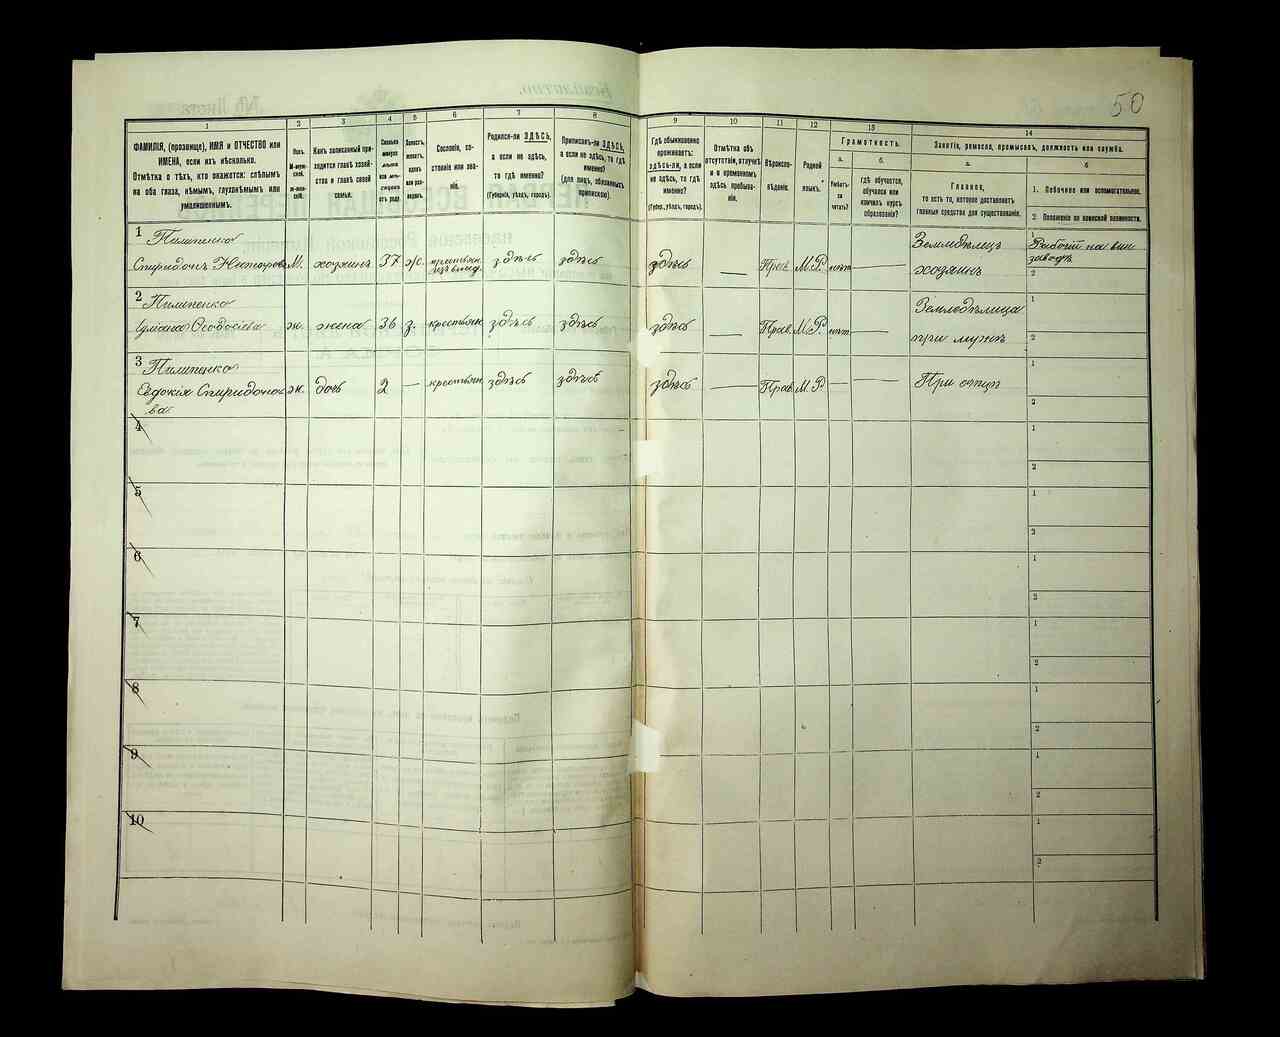 50
1
2
3
4
5
6
7
8
9
10
11
12
13
14
ФАМИЛІЯ, (прозвище), ИМЯ и ОТЧЕСТВО или
ИМЕНА, если ихъ нѣсколько.
Отмѣтка о тѣхъ, кто окажется: слѣпымъ
на оба глаза, нѣмымъ, глухонѣмымъ или
умалишеннымъ.
Полъ.
М-муж-
ской.
Ж-жен-
скій.
Какъ записанный при-
ходится главѣ хозяй-
ства и главѣ своей
семьи.
Сколько
минуло
лѣтъ
или мѣ-
сяцевъ
отъ роду.
Холостъ,
женатъ,
вдовъ
или раз-
веденъ.
Сословіе, со-
стояніе или зва-
ніе.
Родился-ли ЗДѢСЬ,
а если не здѣсь,
то гдѣ именно?
(Губернія, уѣздъ, городъ).
Приписанъ-ли ЗДѢСЬ,
а если не здѣсь, то гдѣ
именно?
(для лицъ, обязанныхъ
припискою).
Гдѣ обыкновенно
проживаетъ:
здѣсь-ли, а если
не здѣсь, то гдѣ
именно?
(Губер., уѣздъ, городъ).
Отмѣтка объ
отсутствіи, отлучкѣ
и о временномъ
здѣсь пребыва-
ніи.
Вѣроиспо-
вѣданіе.
Родной
языкъ.
Грамотность.
а.
б.
Умѣетъ-
ли
читать?
гдѣ обучается,
обучался или
кончилъ курсъ
образованія?
Занятіе, ремесло, промыселъ, должность или служба.
а.
б
Главное,
то есть то, которое доставляетъ
главныя средства для существованія.
1. Побочное или вспомогательное.
2 Положеніе по воинской повинности.
1 Пилипенко
Спиридонъ Несторовъ М. хозяинъ 37 ж. крестьян. здѣсь здѣсь здѣсь — Прав. М.Р. нѣтъ — Земледѣлецъ
хозяинъ
1 Рабочій на вин
заводѣ
2
2 Пилипенко
Ѳеодосіева ж. жена 36 з. крестьян здѣсь здѣсь здѣсь — Прав. М.Р. нѣтъ — Земледѣлица
при мужѣ
1
2
3 Пилипенко
Евдокія Спиридоно
ва ж. дочь 2 — крестьян здѣсь здѣсь здѣсь — Прав М.Р. — — При отцѣ
1
2
4
1
2
5
1
2
6
1
2
7
1
2
8
1
2
9
1
2
10
1
2